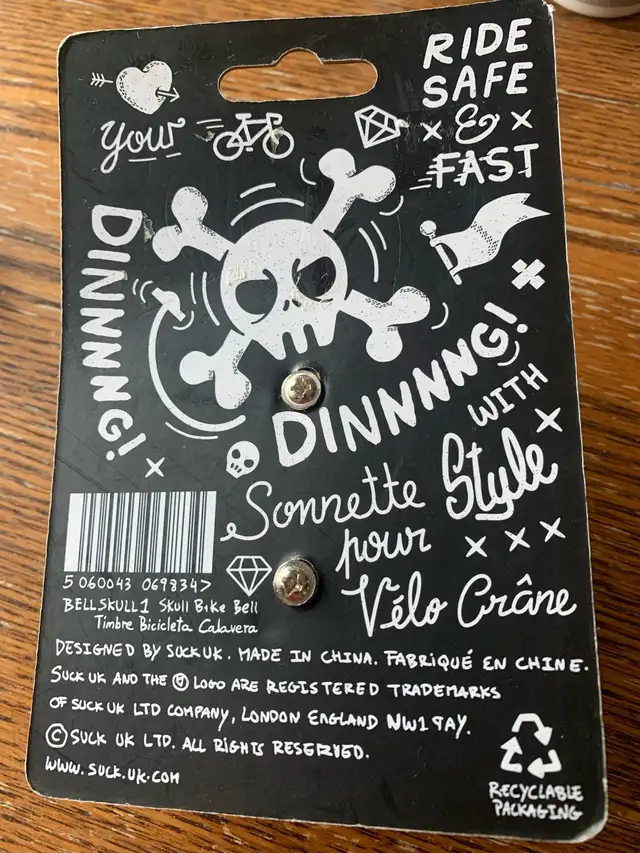 RIDE
SAFE
&
FAST
your
DINNNNG!
DINNNNG!
WITH
Style
Sonnette
pour
Vélo Crâne
5 060043 069834>
BELLSKULL1 Skull Bike Bell
Timbre Bicicleta Calavera
DESIGNED BY SUCK UK. MADE IN CHINA. FABRIQUÉ EN CHINE.
SUCK UK AND THE LOGO ARE REGISTERED TRADEMARKS
OF SUCK UK LTD COMPANY, LONDON ENGLAND NW1 9AY.
© SUCK UK LTD. ALL RIGHTS RESERVED.
WWW.SUCK.UK.COM
RECYCLABLE
PACKAGING